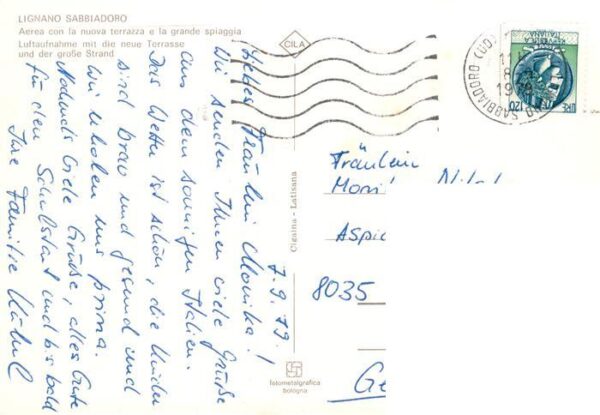 LIGNANO SABBIADORO
Aerea con la nuova terrazza e la grande spiaggia
Luftaufnahme mit die neue Terrasse
und der große Strand
CILA
7.9.79
Liebes Fräulein Monika!
Wir senden Ihnen viele Grüße
aus dem sonnigen Italien.
Das Wetter ist schön, die Kinder
sind brav und gesund und
wir erholen uns prima.
Nochmals viele Grüße, alles Gute
für den Schulstart und bis bald
Ihre Familie
Cigaina - Latisana
fotometalgrafica
bologna
SABBIADORO (UD)
1979
120
Fräulein
8035